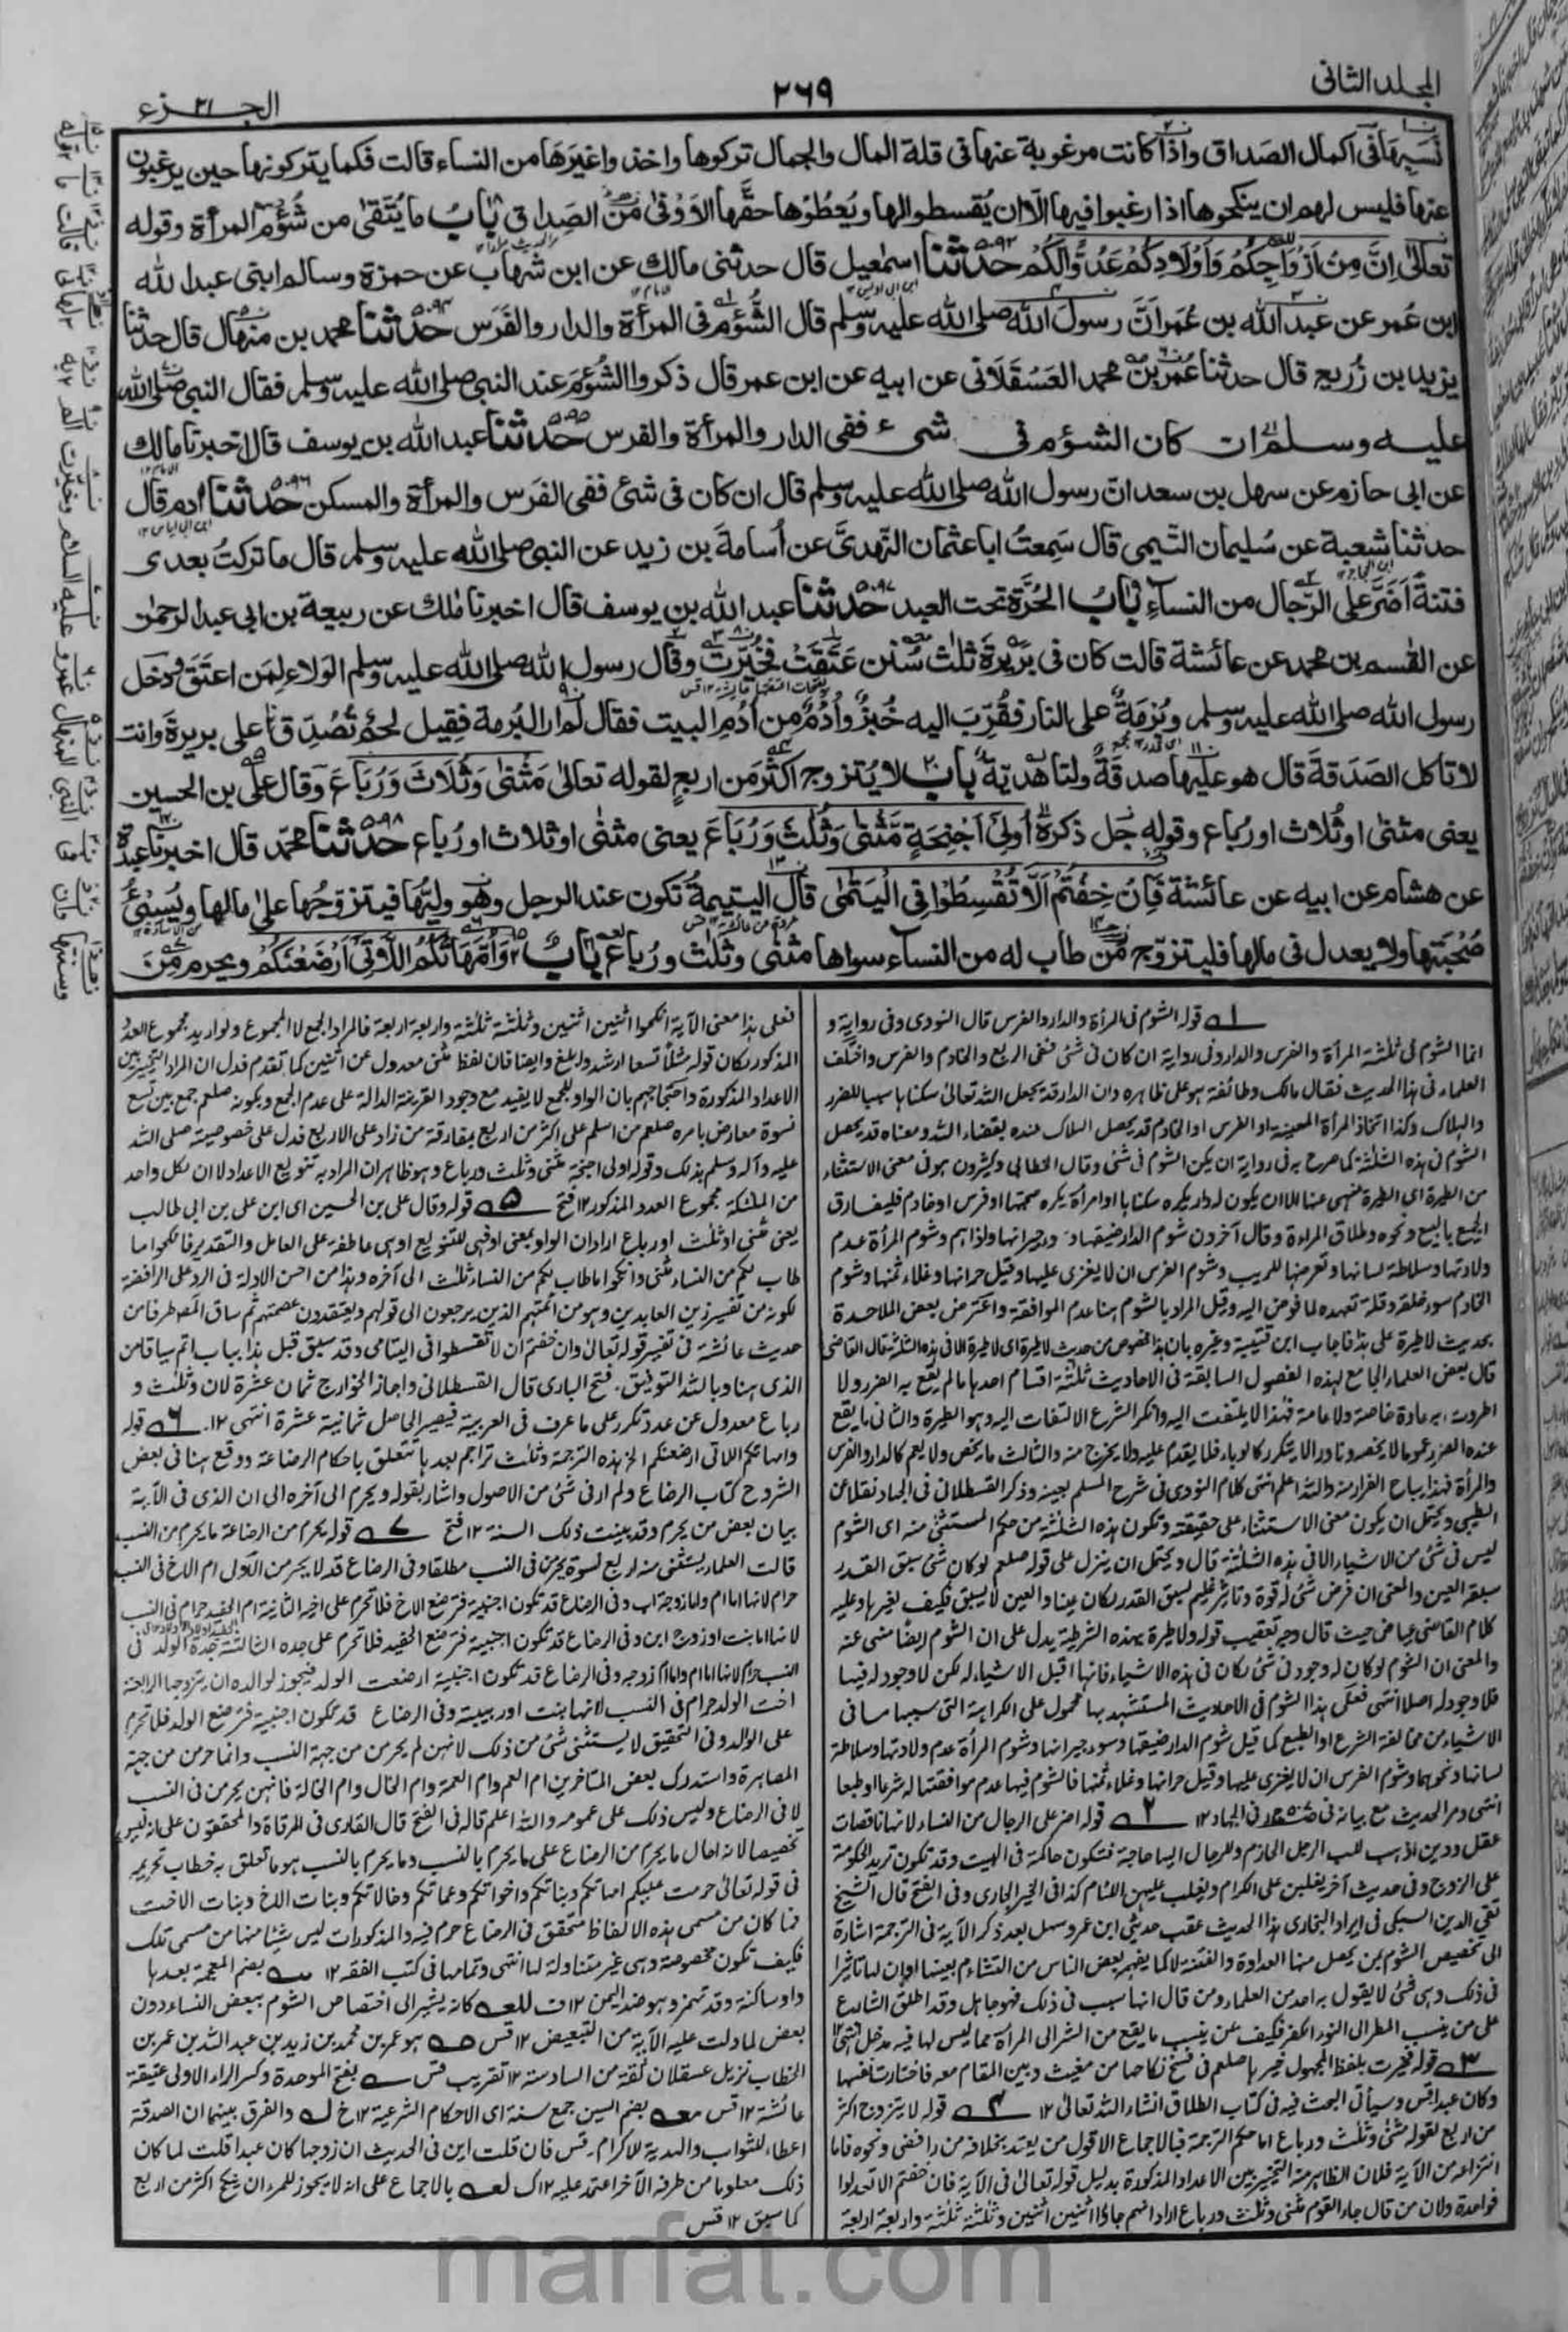 المجلد الثانى
٢٦٩
الجزء ٢١
نسبها فى اكمال الصداق واذا كانت مرغوبة عنها فى قلة المال والجمال تركوها واخذوا غيرها من النساء قالت فكما يتركونها حين يرغبون
عنها فليس لهم ان ينكحوها اذا رغبوا فيها الّا ان يُقسطوا لها ويعطوها حقها الاَوْفٰى من الصداق باب ما يُتّقٰى من شُؤم المرأة وقوله
تعالٰى اِنَّ مِنْ اَزْوَاجِكُمْ وَاَوْلَادِكُمْ عَدُوًّا لَّكُمْ حدثنا اسمٰعيل قال حدثنى مالك عن ابن شهاب عن حمزة وسالم ابنى عبدالله
ابن عمر عن عبد الله بن عمر اَنَّ رسول الله صلى الله عليه وسلم قال الشُّؤم فى المرأة والدار والفَرَس حدثنا محمد بن منهال قال حدثنا
يزيد بن زُريع قال حدثنا عُمَر بن محمد العَسقَلَانى عن ابيه عن ابن عمر قال ذكروا الشُّؤم عند النبى صلى الله عليه وسلم فقال النبى صلى الله
عليه وسلم ان كان الشؤم فى شىء ففى الدار والمرأة والفرس حدثنا عبد الله بن يوسف قال اخبرنا مالك
عن ابى حازم عن سهل بن سعد انّ رسول الله صلى الله عليه وسلم قال ان كان فى شئ ففى الفَرَس والمرأة والمسكن حدثنا اٰدم قال
حدثنا شعبة عن سُليمان التَّيمى قال سَمِعتُ ابا عثمان النَّهدىَّ عن اُسامة بن زيد عن النبى صلى الله عليه وسلم قال ما تركتُ بعدى
فتنةً اَضَرَّ على الرّجال من النساء باب الحُرَّة تحت العبد حدثنا عبد الله بن يوسف قال اخبرنا مٰلك عن ربيعة بن ابى عبد الرحمٰن
عن القٰسم بن محمد عن عائشة قالت كان فى بَرِيرَةَ ثلٰث سُنَن عَتَقَتْ فخُيِّرَتْ وقال رسول الله صلى الله عليه وسلم الوَلاء لِمَن اعتَقَ ودخل
رسول الله صلى الله عليه وسلم وبُرْمَةٌ على النار فقُرِّبَ اليه خُبزٌ واُدُمٌ من اُدُمِ البيت فقال لم ار البُرمة فقِيل لحمٌ تُصُدِّق به على بريرةَ وانت
لا تاكل الصَدَقةَ قال هو عليها صدقةٌ ولنا هَديّةٌ باب لا يُتزوج اكثرُ من اربعٍ لقوله تعالٰى مَثْنٰى وَثُلَاثَ وَرُبَاعَ وقال علىّ بن الحسين
يعنى مثنٰى او ثُلاث او رُباع وقوله جل ذكره اُولِىٓ اَجْنِحَةٍ مَّثْنٰى وَثُلٰثَ وَرُبَاعَ يعنى مثنٰى او ثلاث او رُباع حدثنا محمّد قال اخبرنا عبدة
عن هشام عن ابيه عن عائشة فَاِنْ خِفْتُمْ اَلَّا تُقْسِطُوْا فِى الْيَتٰمٰى قال اليتيمةُ تكون عند الرجل وهو وليّها فيتزوّجُها علٰى مالها ويُسِيْئُ
صُحْبَتَها ولا يعدل فى مالها فليتزوّج من طاب له من النساء سواها مثنٰى وثلٰث ورُباع باب وَاُمَّهَاتُكُمُ اللَّاتِىٓ اَرْضَعْنَكُمْ ويحرم من
١ قوله الشوم فى المرأة والدار والفرس قال النووى وفى رواية و
انما الشوم فى ثلثة المرأة والفرس والدار وفى رواية ان كان فى شئ ففى الربع والخادم والفرس واختلف
العلماء فى هذا الحديث فقال مالك وطائفة هو على ظاهره وان الدار قد يجعل الله تعالى سكناها سببا للضرر
والهلاك وكذا اتخاذ المرأة المعينة او الفرس او الخادم قد يحصل الهلاك عنده بقضاء الله ومعناه قد يحصل
الشوم فى هذه الثلثة كما صرح به فى رواية ان يكن الشوم فى شئ وقال الخطابى وكثيرون هو فى معنى الاستثناء
من الطيرة اى الطيرة منهى عنها الا ان يكون له دار يكره سكناها او امرأة يكره صحبتها او فرس او خادم فليفارق
الجميع بالبيع ونحوه وطلاق المراءة وقال آخرون شوم الدار ضيقها وسوء جيرانها واذاهم وشوم المرأة عدم
ولادتها وسلاطة لسانها وتعرضها للريب وشوم الفرس ان لا يغزى عليها وقيل حرانها وغلاء ثمنها وشوم
الخادم سوء خلقه وقلة تعهده لما فوض اليه وقيل المراد بالشوم هنا عدم الموافقة واعترض بعض الملاحدة
بحديث لا طيرة على هذا فاجاب ابن قتيبة وغيره بان هذا مخصوص من حديث لا طيرة اى لا طيرة الا فى هذه الثلثة قال القاضى
قال بعض العلماء الجامع لهذه الفصول السابقة فى الاحاديث ثلثة اقسام احدها ما لم يقع به الضرر ولا
اطردت به عادة خاصة ولا عامة فهذا لا يلتفت اليه وانكر الشرع الالتفات اليه وهو الطيرة والثانى ما يقع
عنده الضرر عموما لا يخصه ونادرا لا يتكرر كالوباء فلا يقدم عليه ولا يخرج منه والثالث ما يخص ولا يعم كالدار والفرس
والمرأة فهذا يباح الفرار منه والله اعلم انتهى كلام النووى فى شرح المسلم بعينه وذكر القسطلانى فى الجهاد نقلا عن
الطيبى ويحتمل ان يكون معنى الاستثناء على حقيقته وتكون هذه الثلثة من حكم المستثنى منه اى الشوم
ليس فى شئ من الاشياء الا فى هذه الثلثة قال ويحتمل ان ينزل على قوله صلعم لو كان شئ سبق القدر
سبقه العين والمعنى ان فرض شئ له قوة وتاثير عظيم يسبق القدر لكان عينا والعين لا يسبق فكيف لغيرها وعليه
كلام القاضى عياض حيث قال وجه تعقيب قوله ولا طيرة بهذه الشرطية يدل على ان الشوم ايضا منفى عنه
والمعنى ان الشوم لو كان له وجود فى شئ لكان فى هذه الاشياء فانها اقبل الاشياء له لكن لا وجود له فيها
فلا وجود له اصلا انتهى فعلى هذا الشوم فى الاحاديث المستشهد بها محمول على الكراهة التى سببها ما فى
الاشياء من مخالفة الشرع او الطبع كما قيل شوم الدار ضيقها وسوء جيرانها وشوم المرأة عدم ولادتها وسلاطة
لسانها ونحوهما وشوم الفرس ان لا يغزى عليها وقيل حرانها وغلاء ثمنها فالشوم فيها عدم موافقتها له شرعا او طبعا
انتهى ومر الحديث مع بيانه فى الجهاد ١٢ ٢ قوله اضر على الرجال من النساء لانها ناقصات
عقل ودين اذهب للب الرجل الحازم وللرجال اليها حاجة فتكون حاكمة فى البيت وقد تكون تريد الحكومة
على الزوج وفى حديث آخر يغلبن على الكرام ويغلب عليهن اللئام كذا فى الخير الجارى وفى الفتح قال الشيخ
تقى الدين السبكى فى ايراد البخارى هذا الحديث عقب حديثى ابن عمر وسهل بعد ذكر الآية فى الترجمة اشارة
الى تخصيص الشوم بمن يحصل منها العداوة والفتنة لا كما يفهمه بعض الناس من التشاءم بعينها او ان لها تاثيرا
فى ذلك وهى شئ لا يقول به احد من العلماء ومن قال انها سبب فى ذلك فهو جاهل وقد اطلق الشارع
على من ينسب المطر الى النوء الكفر فكيف عن ينسب ما يقع من الشر الى المرأة مما ليس لها فيه مدخل انتهى ١٢
٣ قوله فخيرت بلفظ المجهول خيرها صلعم فى فسخ نكاحها من مغيث وبين المقام معه فاختارت نفسها
وكان عبدا قس وسيأتى البحث فيه فى كتاب الطلاق انشاء الله تعالى ١٢ ٤ قوله لا يتزوج اكثر
من اربع لقوله مثنى وثلث ورباع اما حكم الترجمة فبالاجماع الا قول من يعتد بخلافه من رافضى ونحوه فاما
انتزاعه من الآية فلان الظاهر منه التخيير بين الاعداد المذكورة بدليل قوله تعالى فى الآية فان خفتم الا تعدلوا
فواحدة ولان من قال جاء القوم مثنى وثلث ورباع اراد انهم جاؤا اثنين اثنين وثلثة ثلثة واربعة اربعة
فعلى هذا معنى الآية انكحوا اثنين اثنين وثلثة ثلثة واربعة اربعة فالمراد الجمع لا المجموع ولو اريد مجموع العدد
المذكور لكان قوله مثلا تسعا ارشد وابلغ وايضا فان لفظ مثنى معدول عن اثنين كما تقدم فدل ان المراد التخيير بين
الاعداد المذكورة واحتجاجهم بان الواو للجمع لا يفيد مع وجود القرينة الدالة على عدم الجمع وبكونه صلعم جمع بين تسع
نسوة معارض بامره صلعم من اسلم على اكثر من اربع بمفارقة من زاد على الاربع فدل على خصوصيته صلى الله
عليه وآله وسلم بذلك وقوله اولى اجنحة مثنى وثلث ورباع وهو ظاهر ان المراد به تنويع الاعداد لا ان لكل واحد
من الملئكة مجموع العدد المذكور ١٢ فتح ٥ قوله وقال على بن الحسين اى ابن على بن ابى طالب
يعنى مثنى او ثلث او رباع اراد ان الواو بمعنى او فهى للتنويع او هى عاطفة على العامل والتقدير فانكحوا ما
طاب لكم من النساء مثنى وانكحوا ما طاب لكم من النساء ثلث الى آخره وهذا من احسن الادلة فى الرد على الرافضة
لكونه من تفسير زين العابدين وهو من ائمتهم الذين يرجعون الى قولهم ويعتقدون عصمتهم ثم ساق المصطرفا من
حديث عائشة فى تفسير قوله تعالى وان خفتم ان لا تقسطوا فى اليتامى وقد سبق قبل هذا بباب اتم سياقا من
الذى هنا وبالله التوفيق. فتح البارى قال القسطلانى واجاز الخوارج ثمان عشرة لان وثلث و
رباع معدول عن عدد تكرر على ما عرف فى العربية فيصير الحاصل ثمانية عشرة انتهى ١٢. ٦ قوله
وامهاتكم اللاتى ارضعنكم الخ هذه الترجمة وثلث تراجم بعدها تتعلق باحكام الرضاعة ووقع هنا فى بعض
الشروح كتاب الرضاع ولم ار فى شئ من الاصول واشار بقوله ويحرم الى آخره الى ان الذى فى الآية
بيان بعض من يحرم وقد بينت ذلك السنة ١٢ فتح ٧ قوله يحرم من الرضاعة ما يحرم من النسب
قالت العلماء يستثنى منه اربع نسوة يحرمن فى النسب مطلقا وفى الرضاع قد لا يحرمن الاولى ام الاخ فى النسب
حرام لانها اما ام واما زوجة اب وفى الرضاع قد تكون اجنبية فترضع الاخ فلا تحرم على اخيه الثانية ام الحفيد حرام فى النسب
لانها اما بنت او زوج ابن وفى الرضاع قد تكون اجنبية فترضع الحفيد فلا تحرم على جده الثالثة جدة الولد فى
النسب حرام لانها اما ام واما ام زوجه وفى الرضاع قد تكون اجنبية ارضعت الولد فيجوز لوالده ان يتزوجها الرابعة
اخت الولد حرام فى النسب لانها بنت او ربيبة وفى الرضاع قد تكون اجنبية فترضع الولد فلا تحرم
على الوالد وفى التحقيق لا يستثنى شئ من ذلك لانهن لم يحرمن من جهة النسب وانما حرمن من جهة
المصاهرة واستدرك بعض المتاخرين ام العم وام العمة وام الخال وام الخالة فانهن يحرمن فى النسب
لا فى الرضاع وليس ذلك على عمومه والله اعلم قاله فى الفتح قال القارى فى المرقاة والمحققون على انه ليس
تخصيصا لانه احال ما يحرم من الرضاع على ما يحرم بالنسب وما يحرم بالنسب هو ما تعلق به خطاب تحريمه
فى قوله تعالى حرمت عليكم امهاتكم وبناتكم واخواتكم وعماتكم وخالاتكم وبنات الاخ وبنات الاخت
فما كان من مسمى هذه الالفاظ متحقق فى الرضاع حرم فيه والمذكورات ليس شيئا منها من مسمى تلك
فكيف تكون مخصوصة وهى غير متناولة لها انتهى وتمامها فى كتب الفقه ١٢ بضم المعجمة بعدها
واو ساكنة وقد تهمز وهو ضد اليمن ١٢ ف كانه يشير الى اختصاص الشوم ببعض النساء دون
بعض لما دلت عليه الآية من التبعيض ١٢ قس هو عمر بن محمد بن زيد بن عبد الله بن عمر بن
الخطاب نزيل عسقلان ثقة من السادسة ١٢ تقريب قس بفتح الموحدة وكسر الراء الاولى عتيقة
عائشة ١٢ قس بضم السين جمع سنة اى الاحكام الشرعية ١٢ خ والفرق بينهما ان الصدقة
اعطاء للثواب والهدية للاكرام. قس فان قلت اين فى الحديث ان زوجها كان عبدا قلت لما كان
ذلك معلوما من طرفه الآخر اعتمد عليه ١٢ ك بالاجماع على انه لا يجوز للمرء ان ينكح اكثر من اربع
كما سبق ١٢ قس
marfat.com